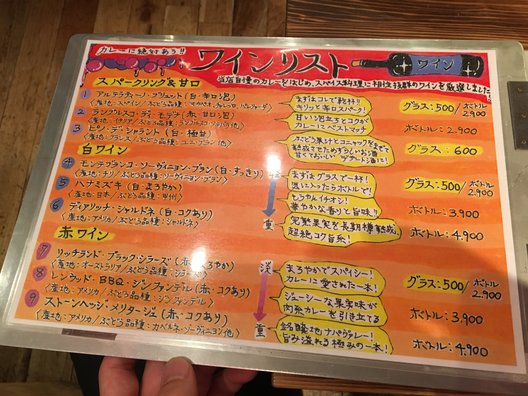 カレーに絶対あう!!
ワインリスト
ワイン
当店自慢のカレーをはじめ、スパイス料理に相性抜群のワインを厳選しました
スパークリング&甘口
1 アルテラティーノ・ブリュット(白・辛口泡)
(産地:スペイン/ぶどう品種:マカベオ、
まずはコレで乾杯!!
キリッと辛口スパークリング!
グラス:500/ボトル2,900
2 ランブルスコ・ディ・モデナ(赤・甘口泡)
(産地:イタリア/ぶどう品種:ランブルスコ
甘い口当たりとコクが
カレーにベストマッチ
ボトル:2,900
3 ピノ・デ・シャラント(白・極甘)
(産地:フランス/ぶどう品種:ユニブラン他)
ぶどう果汁とコニャックを
熟成させためずらしいお酒
甘くておいしいデザート酒に!
グラス:600
白ワイン
4 モンテフランコ・ソーヴィニョン・ブラン(白・すっきり)
(産地:チリ/ぶどう品種:ソーヴィニヨン・ブラン)
まずはグラスで一杯!
気に入ったらボトルで!
グラス:500/ボトル2,900
5 ハナミズキ(白・まろやか)
(産地:日本/ぶどう品種:甲州)
もうかんイチオシ!
華やかな香りと旨味!
ボトル:3,900
6 ディアリッナ・シャルドネ(白・コクあり)
(産地:アメリカ/ぶどう品種:シャルドネ)
完熟果実を長期樽熟成
超絶コク旨系!
ボトル:4,900
重
赤ワイン
7 リッチランド・ブラック・シラーズ(赤・まろやか)
(産地:オーストラリア/ぶどう品種:シラーズ)
淡
まろやかでスパイシー!
カレーに愛された一本!
グラス:500/ボトル2,900
8 レンウッド・BBQ・ジンファンデル(赤・コクあり)
(産地:アメリカ/ぶどう品種:ジンファンデル)
ジューシーな果実味が
肉系カレーを引き立てる
ボトル:3,900
9 ストーンヘッジ・メリタージュ(赤・コクあり)
(産地:アメリカ/ぶどう品種:カベルネ・ソーヴィニョン他)
重
銘醸地ナパヴァレー!
旨み溢れる極みの一本!
ボトル:4,900